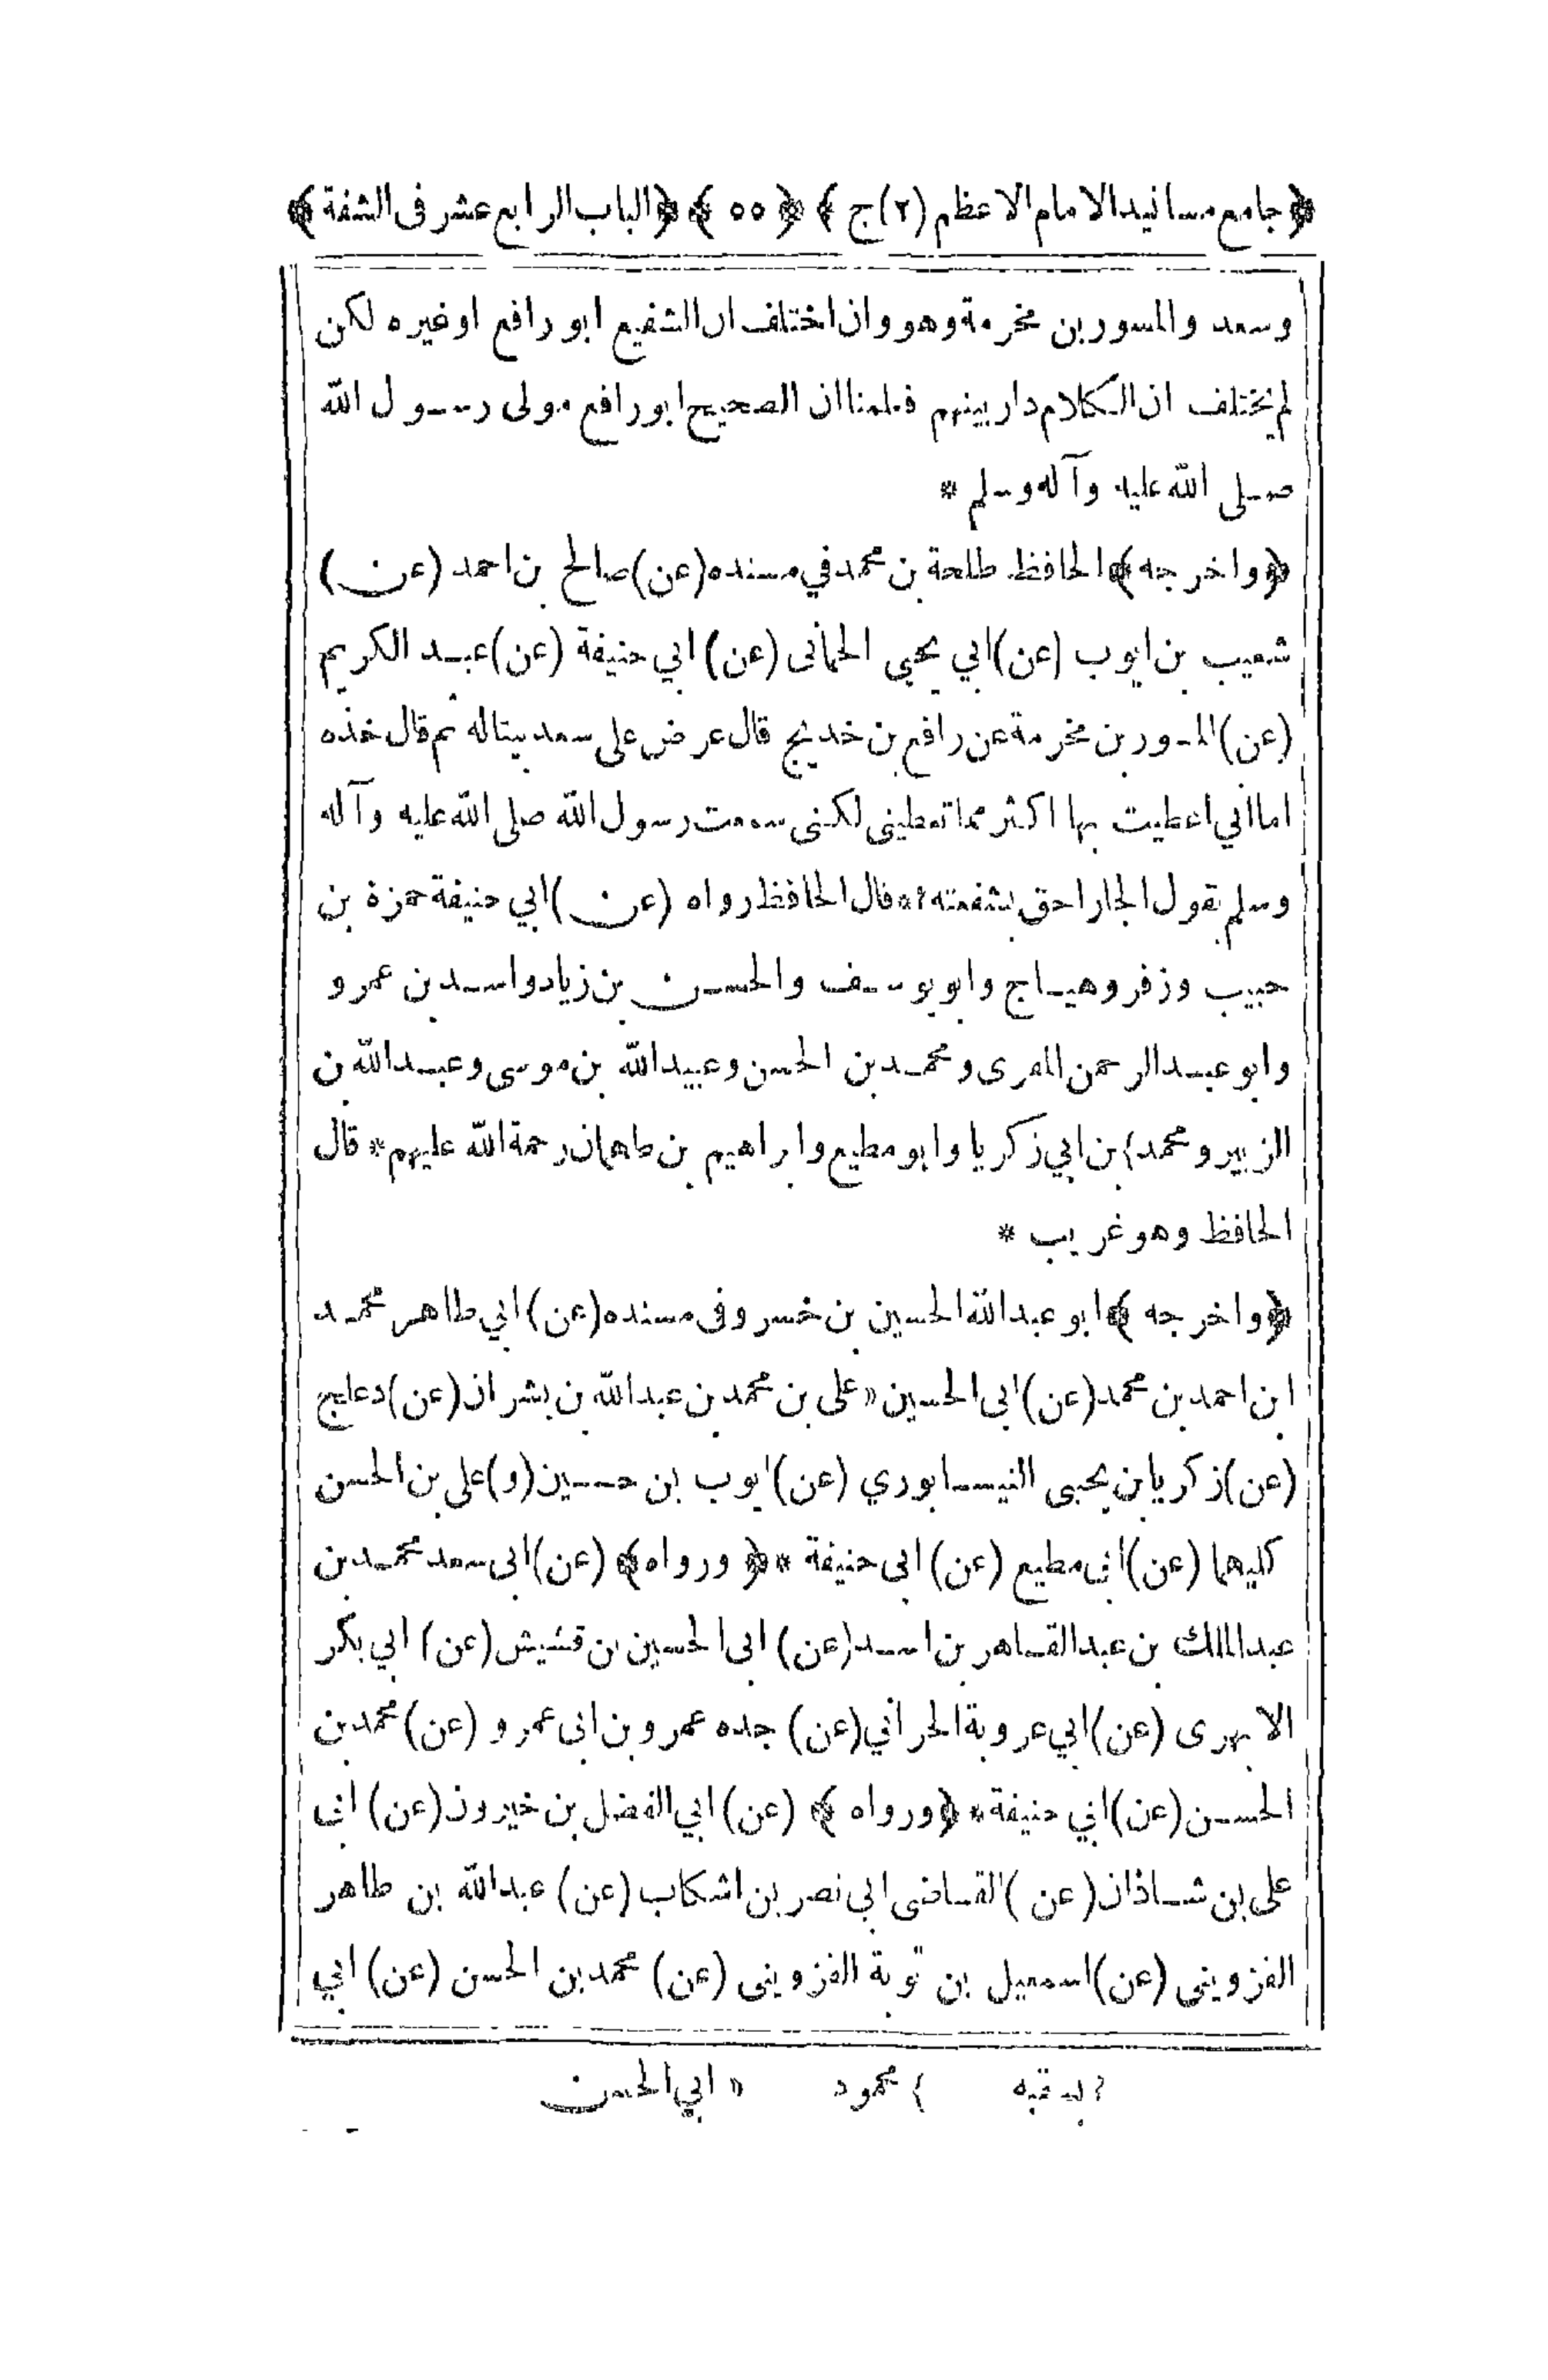 ﴿جامع مسانيد الامام الاعظم (٢)ج﴾ ﴿٥٥﴾ ﴿الباب الرابع عشر فى الشفعة﴾
وسعد والمسور بن مخرمة وهو وان اختلف ان الشفيع ابو رافع او غيره لكن
لم يختلف ان الكلام دار بينهم فعلمنا ان الصحيح ابو رافع مولى رسول الله
صلى الله عليه وآله وسلم *
﴿واخرجه﴾ الحافظ طلحة بن محمد في مسنده (عن) صالح بن احمد (عن)
شعيب بن ايوب (عن) ابي يحيى الحمانى (عن) ابي حنيفة (عن) عبد الكريم
(عن) المسور بن مخرمة عن رافع بن خديج قال عرض على سعد بيتا له ثم قال خذه
اما انى اعطيت بها اكثر مما تعطينى لكنى سمعت رسول الله صلى الله عليه وآله
وسلم يقول الجار احق بشفعته ٢ * قال الحافظ رواه (عن) ابي حنيفة حمزة بن
حبيب وزفر وهياج وابو يوسف والحسن بن زياد واسد بن عمرو
وابو عبد الرحمن المقرى ومحمد بن الحسن وعبيد الله بن موسى وعبد الله بن
الزبير ومحمد ) بن ابي زكريا وابو مطيع وابراهيم بن طهمان رحمة الله عليهم * قال
الحافظ وهو غريب *
﴿واخرجه﴾ ابو عبد الله الحسين بن خسرو فى مسنده (عن) ابي طاهر محمد
ابن احمد بن محمد (عن) ابى الحسين « على بن محمد بن عبد الله بن بشران (عن) دعلج
(عن) زكريا بن يحيى النيسابوري (عن) ايوب بن حسين (و) على بن الحسن
كليهما (عن) ابى مطيع (عن) ابى حنيفة * ﴿ورواه﴾ (عن) ابى سعد محمد بن
عبد الملك بن عبد القاهر بن اسد (عن) ابى الحسين بن قشيش (عن) ابي بكر
الابهرى (عن) ابي عروبة الحراني (عن) جده عمرو بن ابى عمرو (عن) محمد بن
الحسن (عن) ابي حنيفة * ﴿ورواه﴾ (عن) ابي الفضل بن خيرون (عن) ابى
على بن شاذان (عن) القاضى ابي نصر بن اشكاب (عن) عبد الله بن طاهر
القزوينى (عن) اسمعيل بن توبة القزوينى (عن) محمد بن الحسن (عن) ابي
٢ بسقبه ) محمود « ابي الحسن